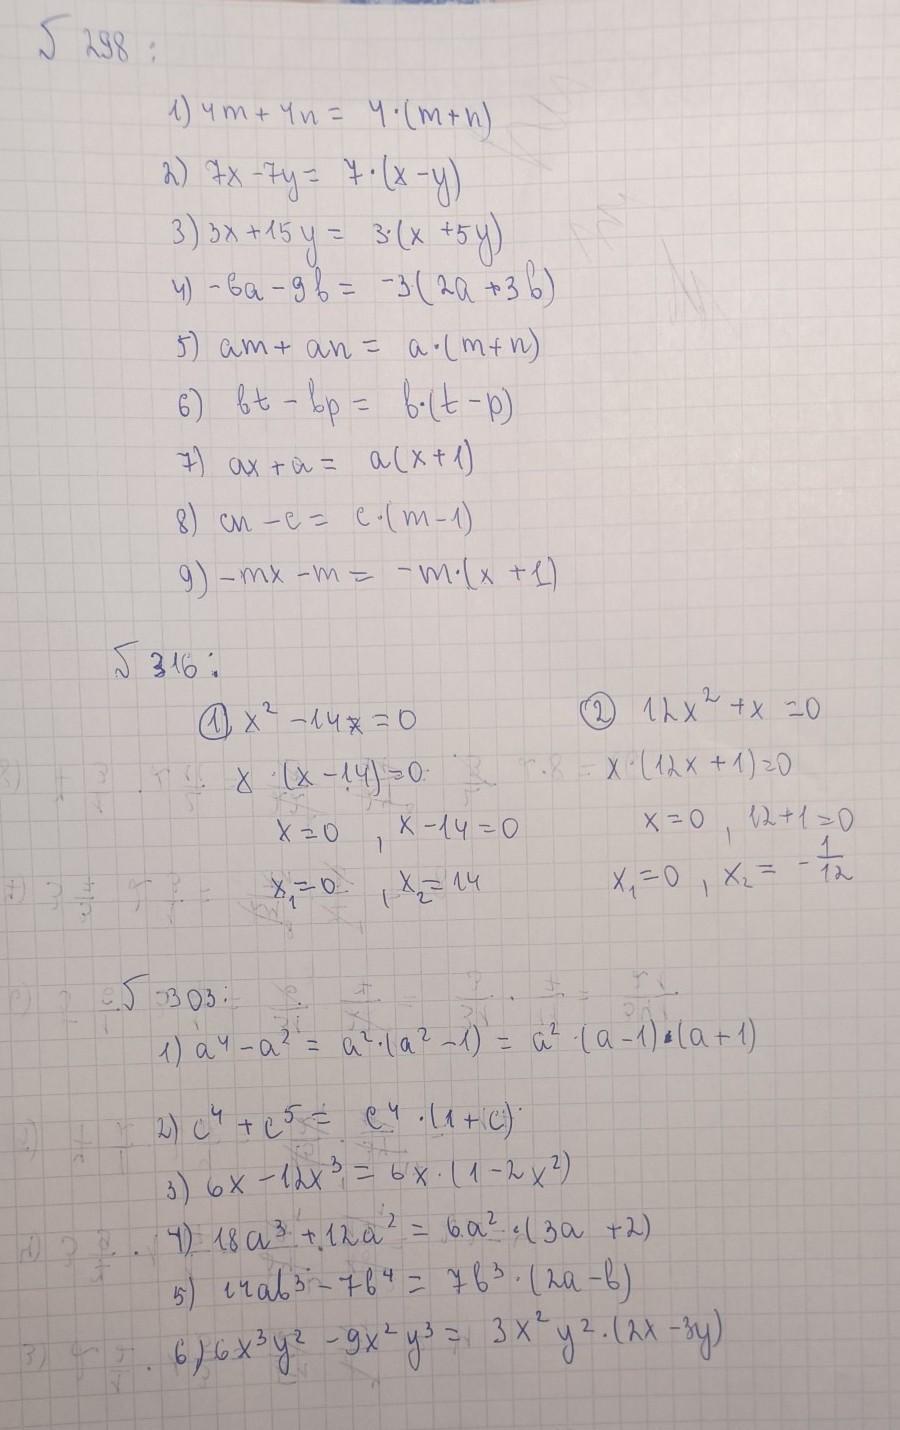 № 298:
1) 4m + 4n = 4·(m+n)
2) 7x - 7y = 7·(x - y)
3) 3x + 15y = 3·(x + 5y)
4) -6a - 9b = -3(2a + 3b)
5) am + an = a·(m+n)
6) bt - bp = b·(t - p)
7) ax + a = a(x + 1)
8) cm - c = c·(m - 1)
9) -mx - m = -m·(x + 1)
№ 316:
① x² - 14x = 0
x·(x - 14) = 0
x = 0 , x - 14 = 0
x₁ = 0 , x₂ = 14
② 12x² + x = 0
x·(12x + 1) = 0
x = 0 , 12 + 1 = 0
x₁ = 0 , x₂ = -1/12
№ 303:
1) a⁴ - a² = a²·(a² - 1) = a²·(a - 1)·(a + 1)
2) c⁴ + c⁵ = c⁴·(1 + c)
3) 6x - 12x³ = 6x·(1 - 2x²)
4) 18a³ + 12a² = 6a²·(3a + 2)
5) 14ab³ - 7b⁴ = 7b³·(2a - b)
6) 6x³y² - 9x²y³ = 3x²y²·(2x - 3y)